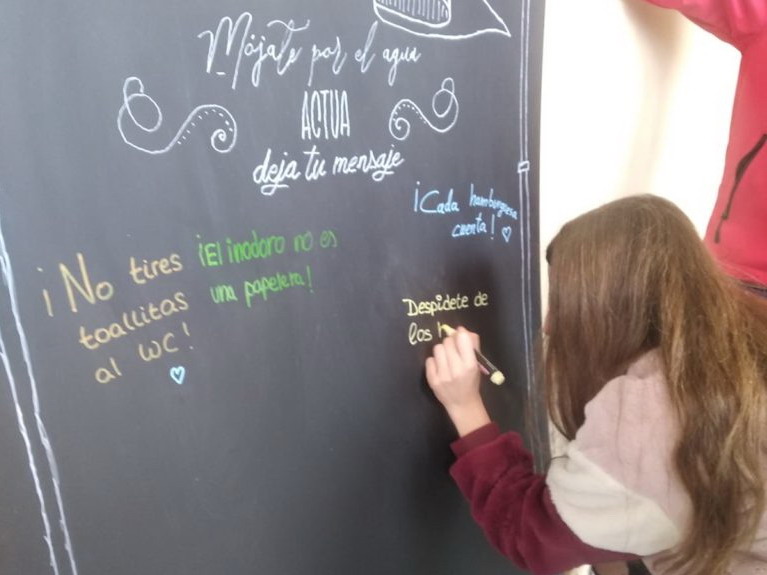 Mójate por el agua
ACTUA
deja tu mensaje
¡Cada hamburguesa
cuenta!
¡No tires
toallitas
al WC!
¡El inodoro no es
una papelera!
Despidete de
los h